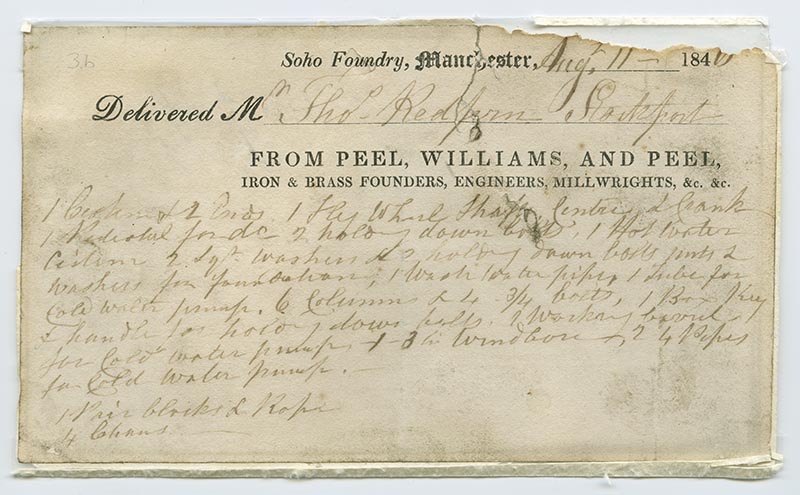 3b
Soho Foundry, Manchester, Augt. 11 — 184
Delivered Mr Thos. Redfern Stockport
FROM PEEL, WILLIAMS, AND PEEL,
IRON & BRASS FOUNDERS, ENGINEERS, MILLWRIGHTS, &c. &c.
1 & 2 Ends. 1 Fly Wheel Shaft, Centre & Crank
1 Pedistal for do 2 holdg down bolts, 1 Hot Water
Cistern 2 Sqr. Washers & 2 holdg down bolts nuts &
washers for foundation, 1 Wash Water pipe, 1 tube for
Cold water pump. 6 Columns & 4 3/4 bolts, 1 Box Key
& handle for holdg down bolts. 1 Working barrel
for Cold water pump, 1 - 3 in Windbore, 2 4 Pipes
for Cold Water pump. —
1 Pair blocks & Rope
4 Chains